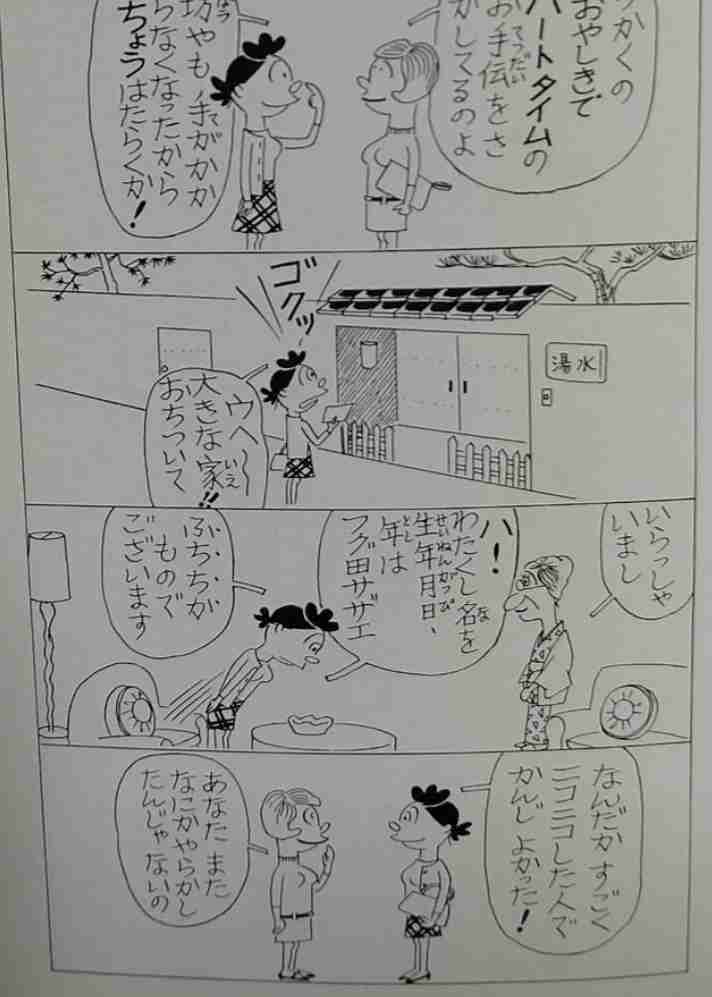 かくの
おやしきで
パートタイムの
お手伝をさ
がしてるのよ
坊やも 手がかか
らなくなったから
ちょうはたらくか!
湯水
ゴクッ
ウヘ〜
大きな家!!
おちついて
いらっしゃ
いまし
ハ!
わたくし名を
生年月日、
年は
フグ田サザエ
ぶちちが
もので
ございます
なんだか すごく
ニコニコした人で
かんじ よかった!
あなた また
なにかやらかし
たんじゃ ないの